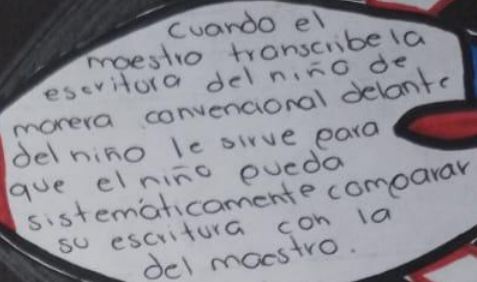 cuando el
maestro transcribe la
escritura del niño de
manera convencional delante
del niño le sirve para
que el niño pueda
sistemáticamente comparar
su escritura con la
del maestro.